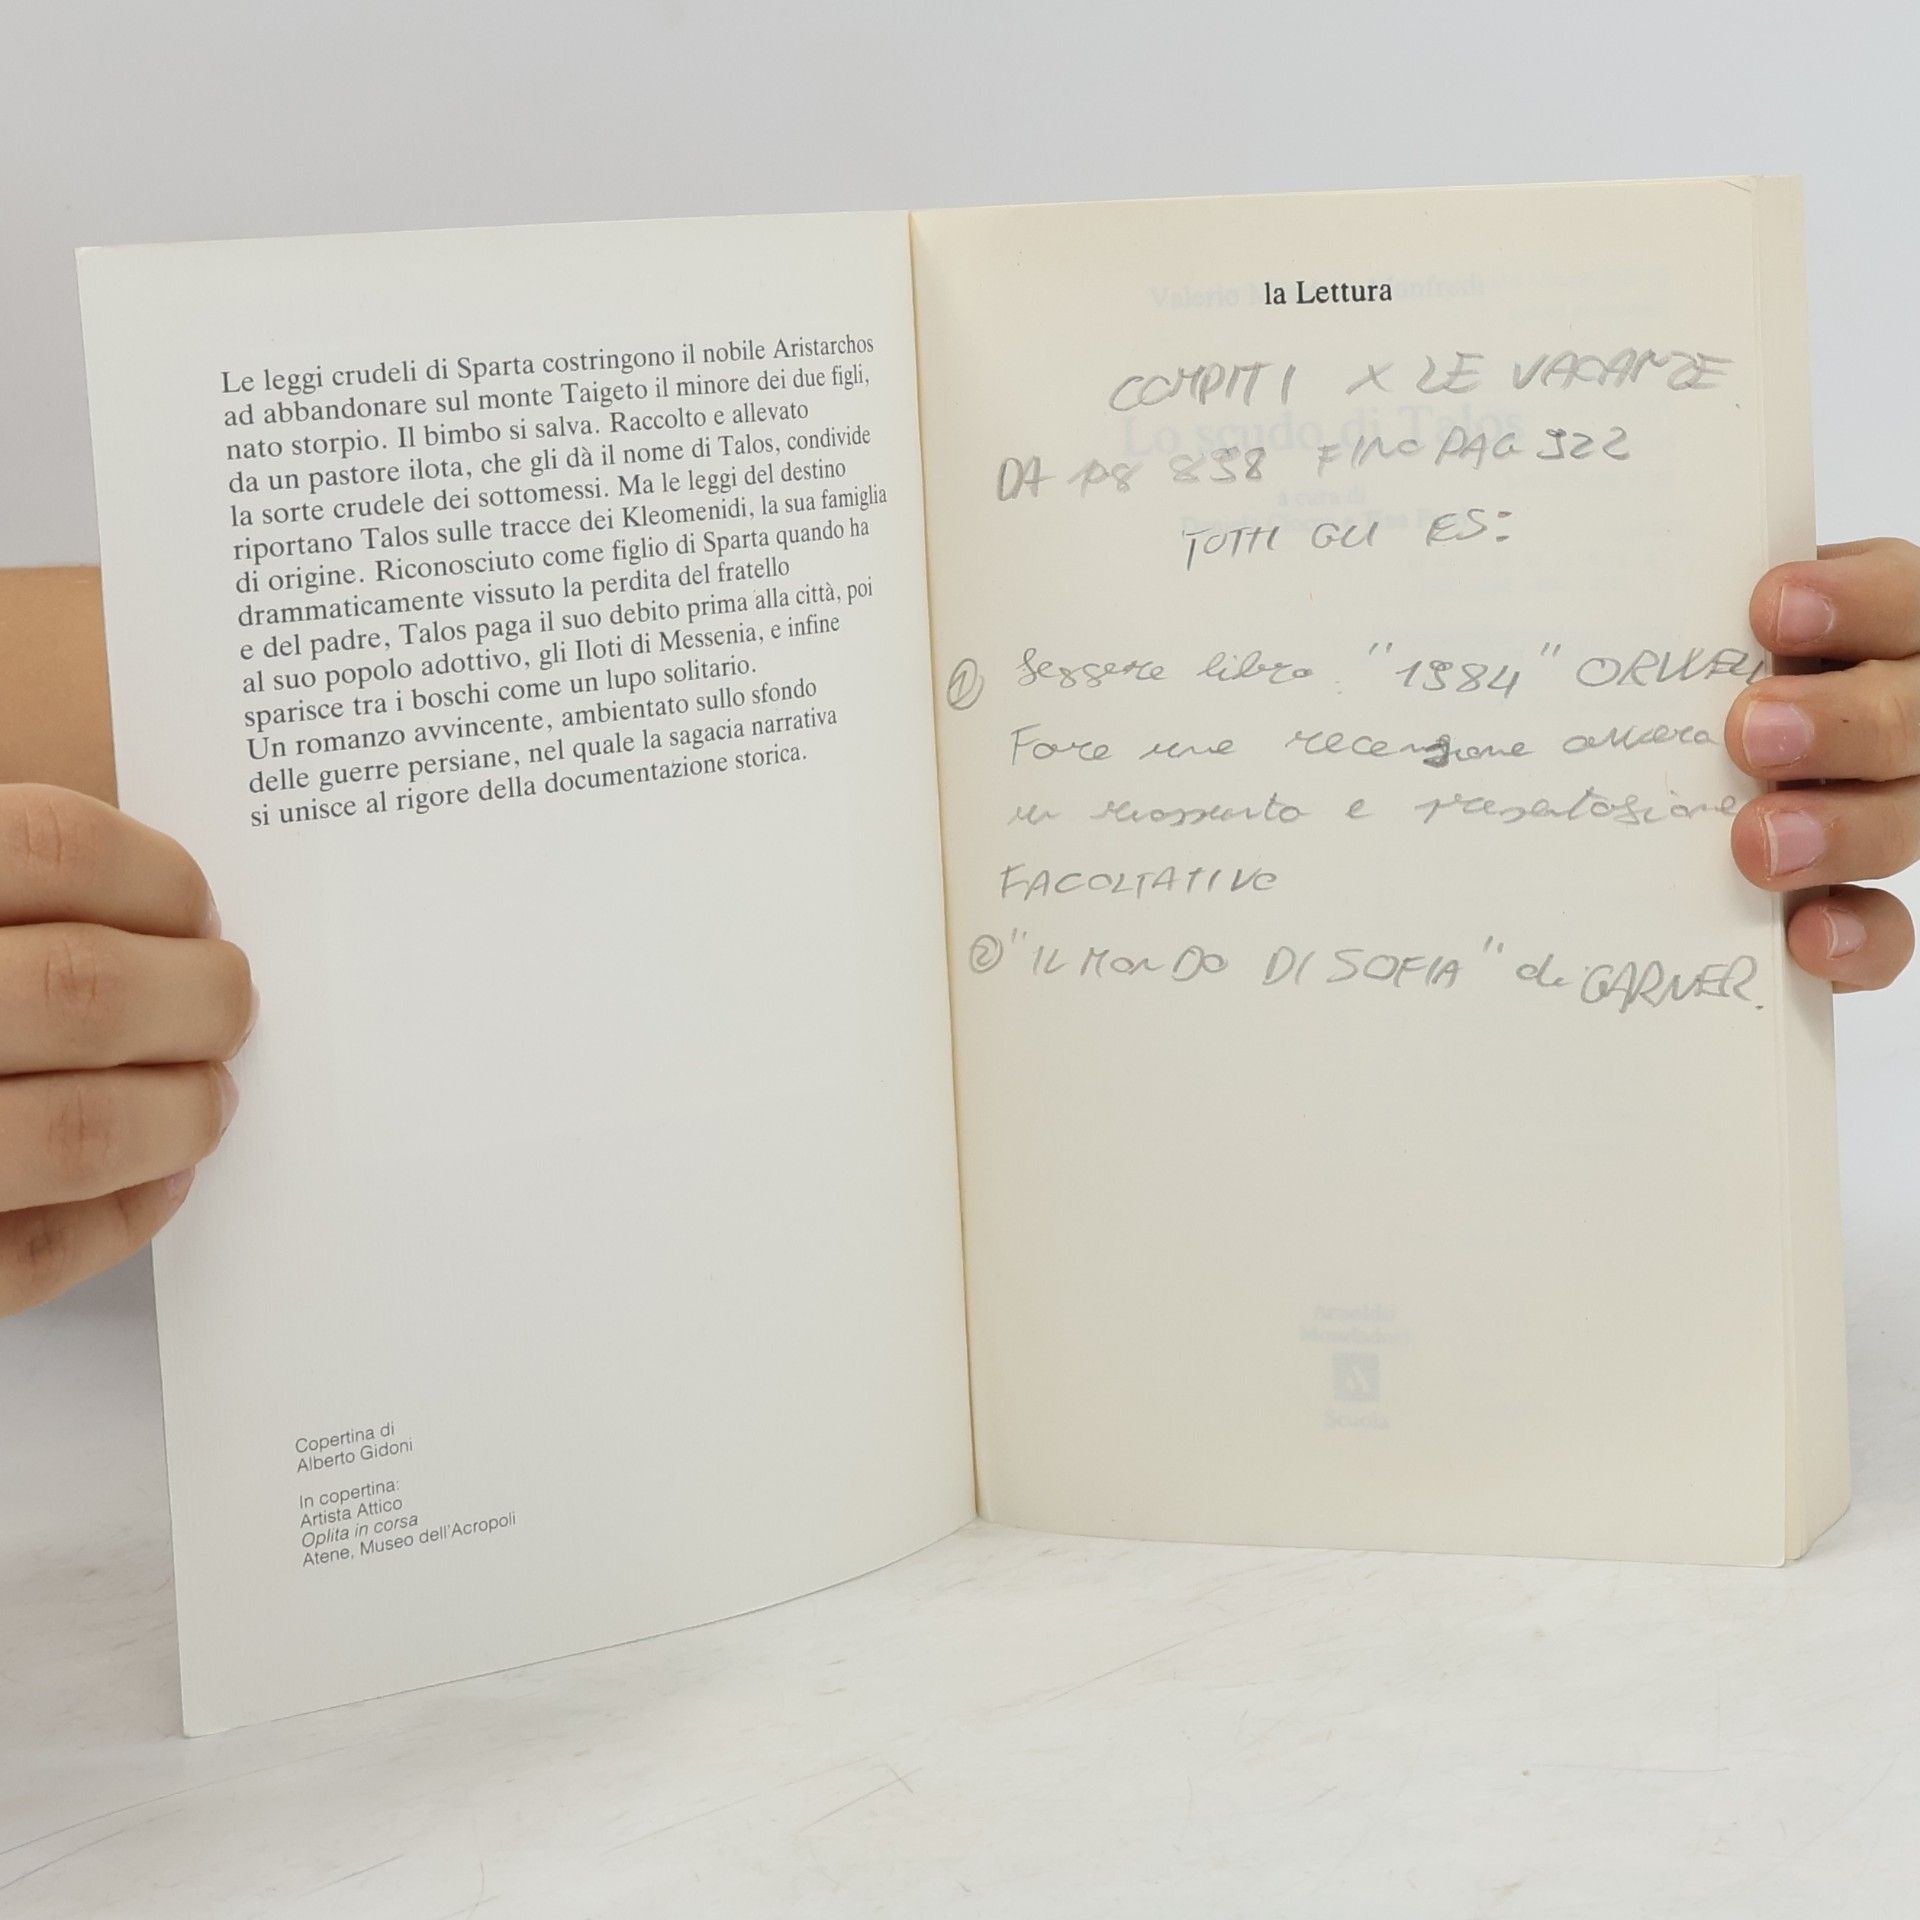 Le leggi crudeli di Sparta costringono il nobile Aristarchos
ad abbandonare sul monte Taigeto il minore dei due figli,
nato storpio. Il bimbo si salva. Raccolto e allevato
da un pastore ilota, che gli dà il nome di Talos, condivide
la sorte crudele dei sottomessi. Ma le leggi del destino
riportano Talos sulle tracce dei Kleomenidi, la sua famiglia
di origine. Riconosciuto come figlio di Sparta quando ha
drammaticamente vissuto la perdita del fratello
e del padre, Talos paga il suo debito prima alla città, poi
al suo popolo adottivo, gli Iloti di Messenia, e infine
sparisce tra i boschi come un lupo solitario.
Un romanzo avvincente, ambientato sullo sfondo
delle guerre persiane, nel quale la sagacia narrativa
si unisce al rigore della documentazione storica.
Copertina di
Alberto Gidoni
In copertina:
Artista Attico
Oplita in corsa
Atene, Museo dell'Acropoli
la Lettura
COMPITI X LE VACANZE
DA FINO PAG 922
TUTTI GLI ES:
① Leggere libro "1984" ORWELL
Fare una recensione ovvero
un riassunto e presentazione
FACOLTATIVO
② "IL MONDO DI SOFIA" di GARNER.
Lo scudo di Talos
a cura di
Arnoldo
Mondadori
Scuola